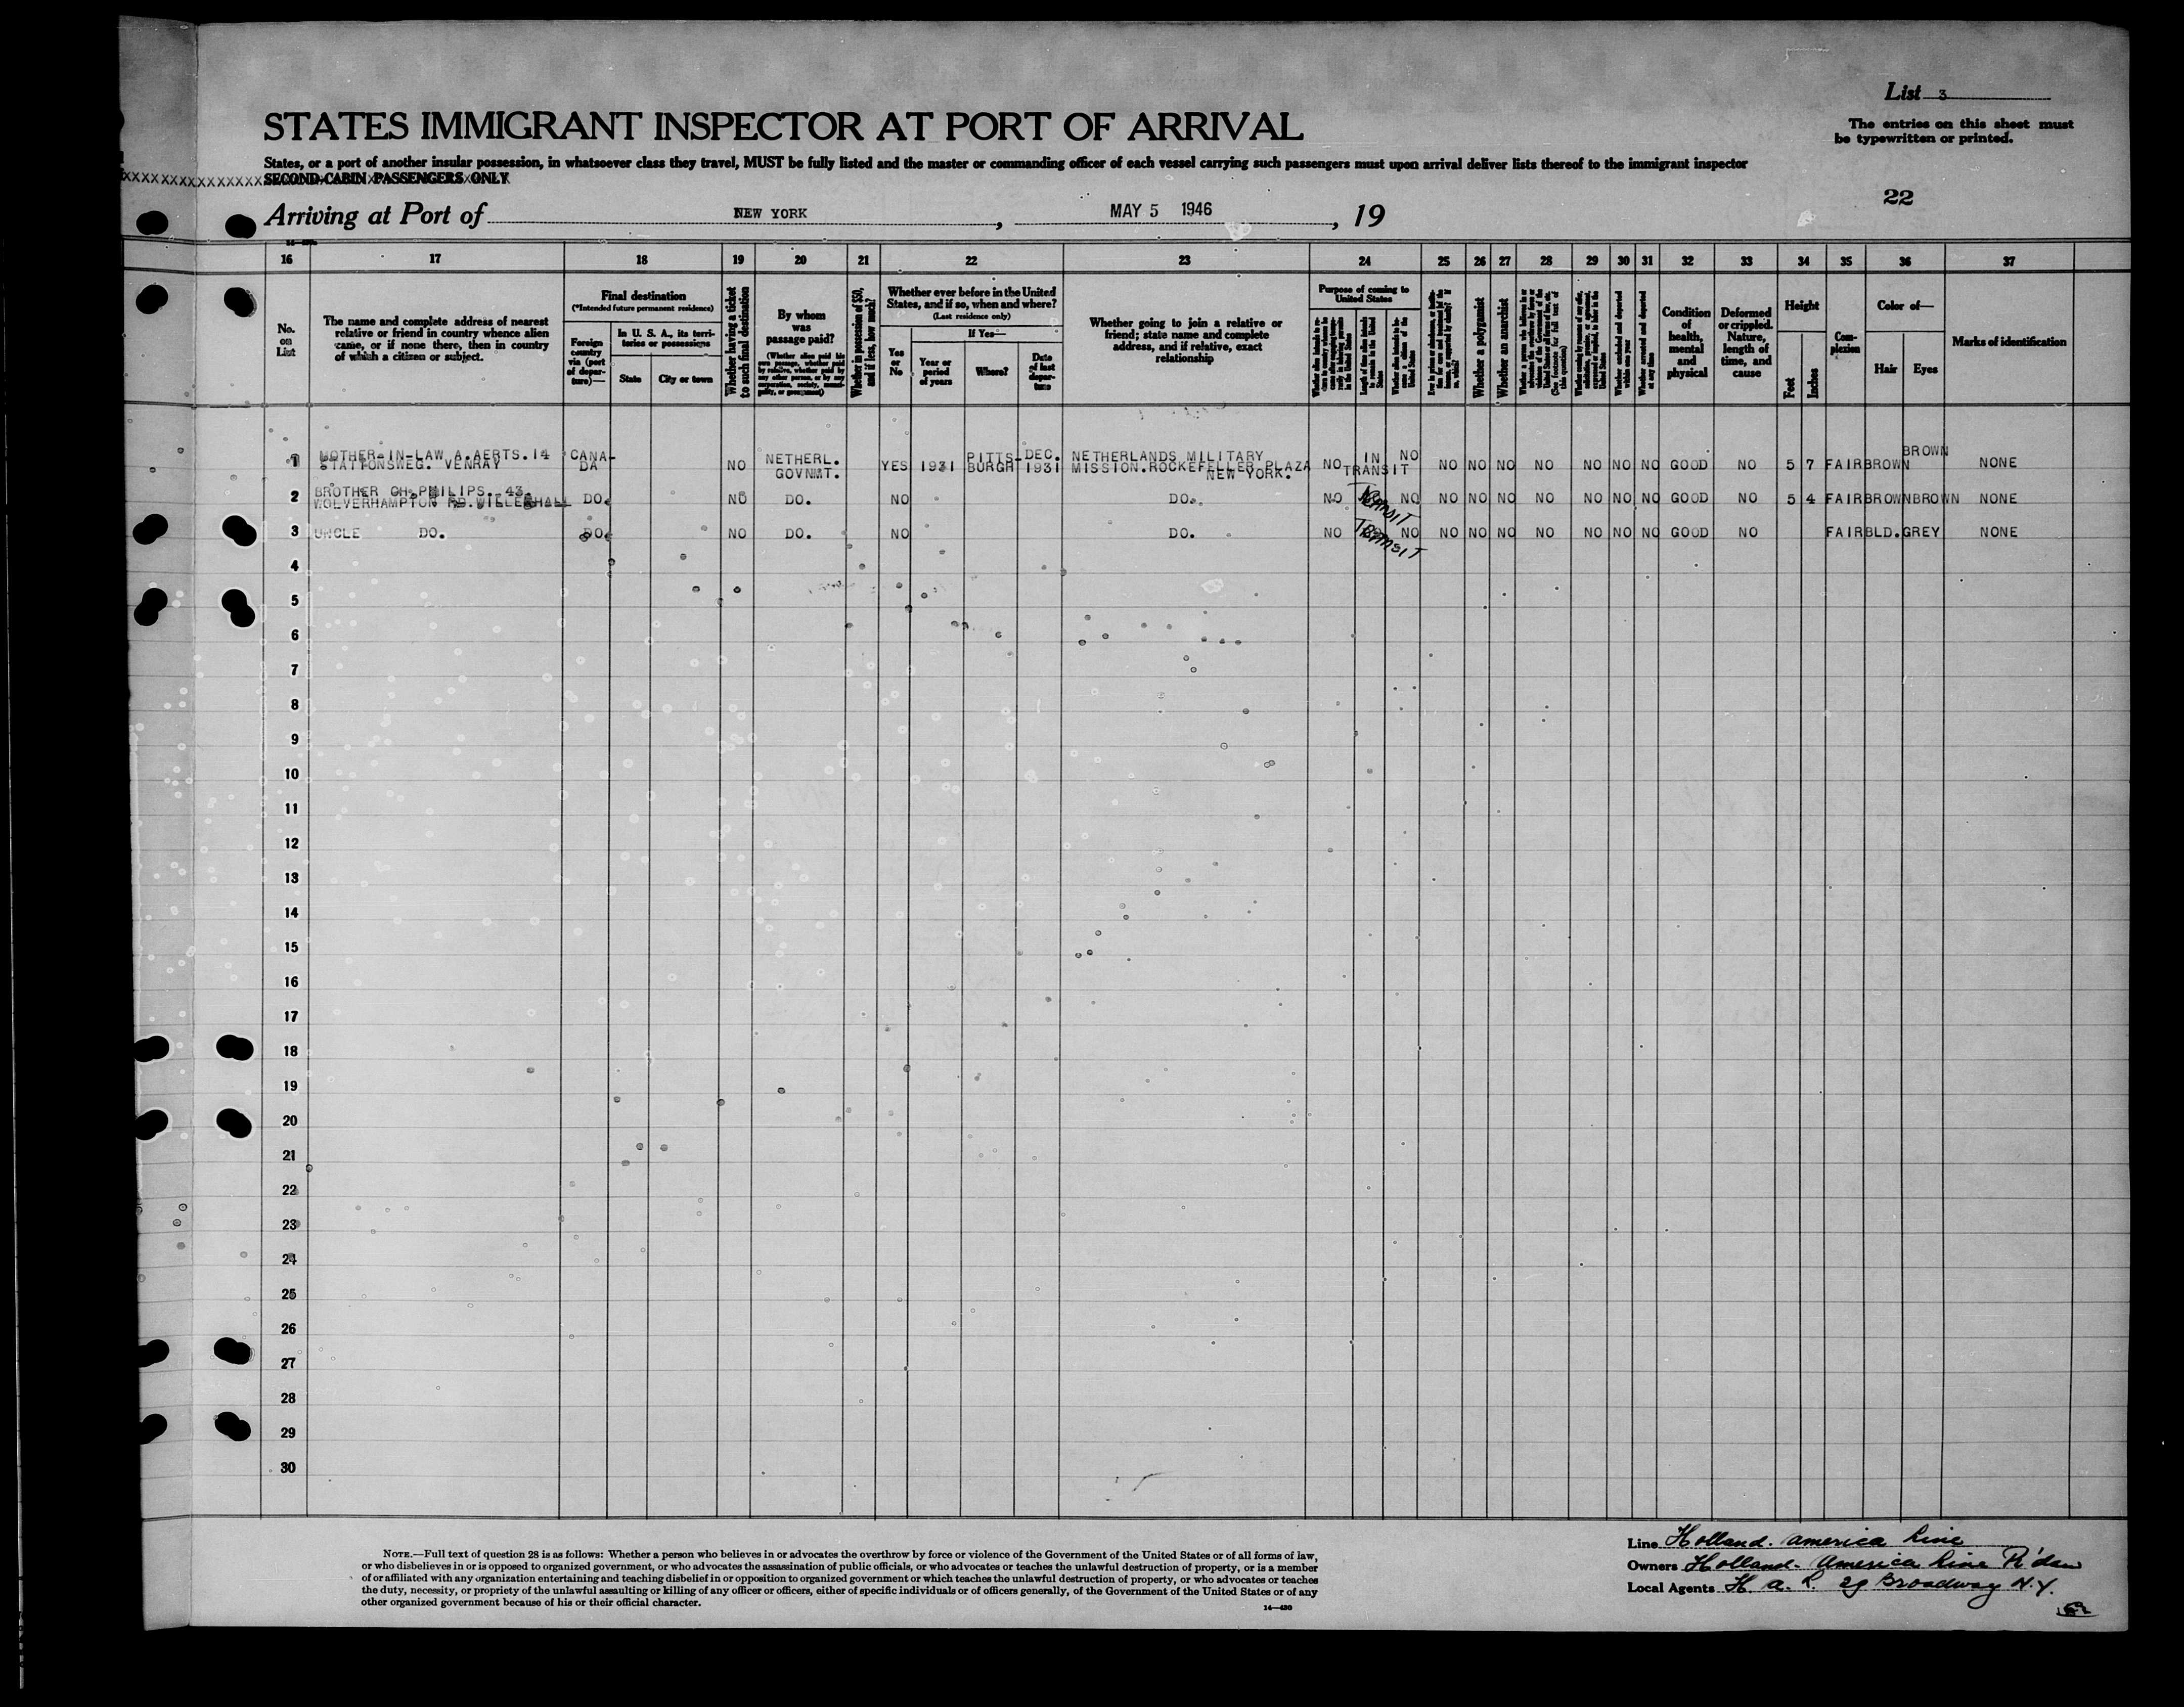 List 3
STATES IMMIGRANT INSPECTOR AT PORT OF ARRIVAL
The entries on this sheet must
be typewritten or printed.
States, or a port of another insular possession, in whatsoever class they travel, MUST be fully listed and the master or commanding officer of each vessel carrying such passengers must upon arrival deliver lists thereof to the immigrant inspector
SECOND-CABIN PASSENGERS ONLY
22
Arriving at Port of NEW YORK, MAY 5 1946, 19
16 17 18 19 20 21 22 23 24 25 26 27 28 29 30 31 32 33 34 35 36 37
No.
on
List
The name and complete address of nearest
relative or friend in country whence alien
came, or if none there, then in country
of which a citizen or subject.
Final destination
(*Intended future permanent residence)
Foreign
country
via (port
of depar-
ture)—
In U. S. A., its terri-
tories or possessions
State
City or town
Whether having a ticket
to such final destination
By whom
was
passage paid?
(Whether alien paid his
own passage, whether paid
by relative, whether paid by
any other person, or by any
corporation, society, munici-
pality, or government)
Whether in possession of $50,
and if less, how much?
Whether ever before in the United
States, and if so, when and where?
(Last residence only)
Yes
or
No
If Yes—
Year or
period
of years
Where?
Date
of last
depar-
ture
Whether going to join a relative or
friend; state name and complete
address, and if relative, exact
relationship
Purpose of coming to
United States
Length of time alien intends
to remain in the United
States
Whether alien intends to be-
come a citizen of the
United States
Whether a polygamist
Whether an anarchist
(See footnote for full text of
this question)
Whether arrested and deported
at any time
Condition
of
health,
mental
and
physical
Deformed
or crippled.
Nature,
length of
time, and
cause
Height
Feet
Inches
Com-
plexion
Color of—
Hair
Eyes
Marks of identification
1 MOTHER-IN-LAW A.AERTS.14 STATIONSWEG. VENRAY CANA-DA NO NETHERL. GOVNMT. YES 1931 PITTS-BURGH DEC. 1931 NETHERLANDS MILITARY MISSION.ROCKEFELLER PLAZA NEW YORK. NO IN TRANSIT NO NO NO NO NO NO NO NO GOOD NO 5 7 FAIR BROWN BROWN NONE
2 BROTHER CH.PHILIPS. 43. WOLVERHAMPTON RD.WILLENHALL DO. NO DO. NO DO. NO TRANSIT NO NO NO NO NO NO NO NO GOOD NO 5 4 FAIR BROWN BROWN NONE
3 UNCLE DO. DO. NO DO. NO DO. NO TRANSIT NO NO NO NO NO NO NO NO GOOD NO FAIR BLD. GREY NONE
4
5
6
7
8
9
10
11
12
13
14
15
16
17
18
19
20
21
22
23
24
25
26
27
28
29
30
NOTE.—Full text of question 28 is as follows: Whether a person who believes in or advocates the overthrow by force or violence of the Government of the United States or of all forms of law,
or who disbelieves in or is opposed to organized government, or who advocates the assassination of public officials, or who advocates or teaches the unlawful destruction of property, or is a member
of or affiliated with any organization entertaining and teaching disbelief in or opposition to organized government or which teaches the unlawful destruction of property, or who advocates or teaches
the duty, necessity, or propriety of the unlawful assaulting or killing of any officer or officers, either of specific individuals or of officers generally, of the Government of the United States or of any
other organized government because of his or their official character.
14—430
Line Holland. America Line
Owners Holland. America Line R'dam
Local Agents H. A. L. 29 Broadway N.Y.